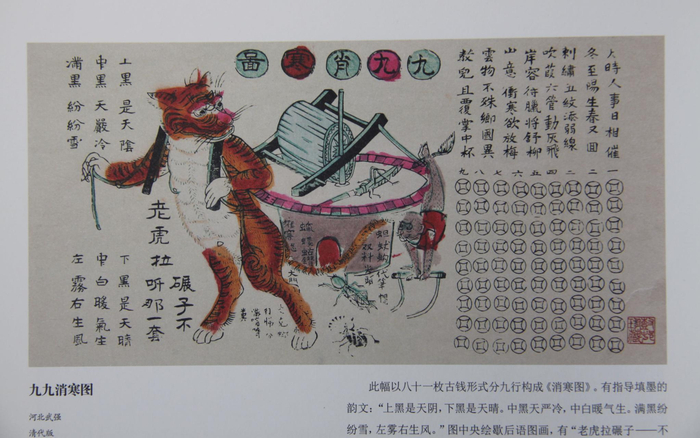 九九肖寒啚
天時人事日相催
冬至陽生春又回
刺繡五紋添弱線
吹葭六管動灰飛
岸容待臘將舒柳
山意衝寒欲放梅
雲物不殊鄉國異
教兒且覆掌中杯
一 二 三 四 五 六 七 八 九
老虎拉
碾子不
听那一套
上黑是天陰
中黑天嚴冷
滿黑紛紛雪
下黑是天晴
中白暖氣生
左霧右生風
九九消寒图
河北武强
清代版
此幅以八十一枚古钱形式分九行构成《消寒图》。有指导填墨的
韵文：“上黑是天阴，下黑是天晴。中黑天严冷，中白暖气生。满黑纷
纷雪，左雾右生风。”图中央绘歇后语图画，有“老虎拉碾子——不